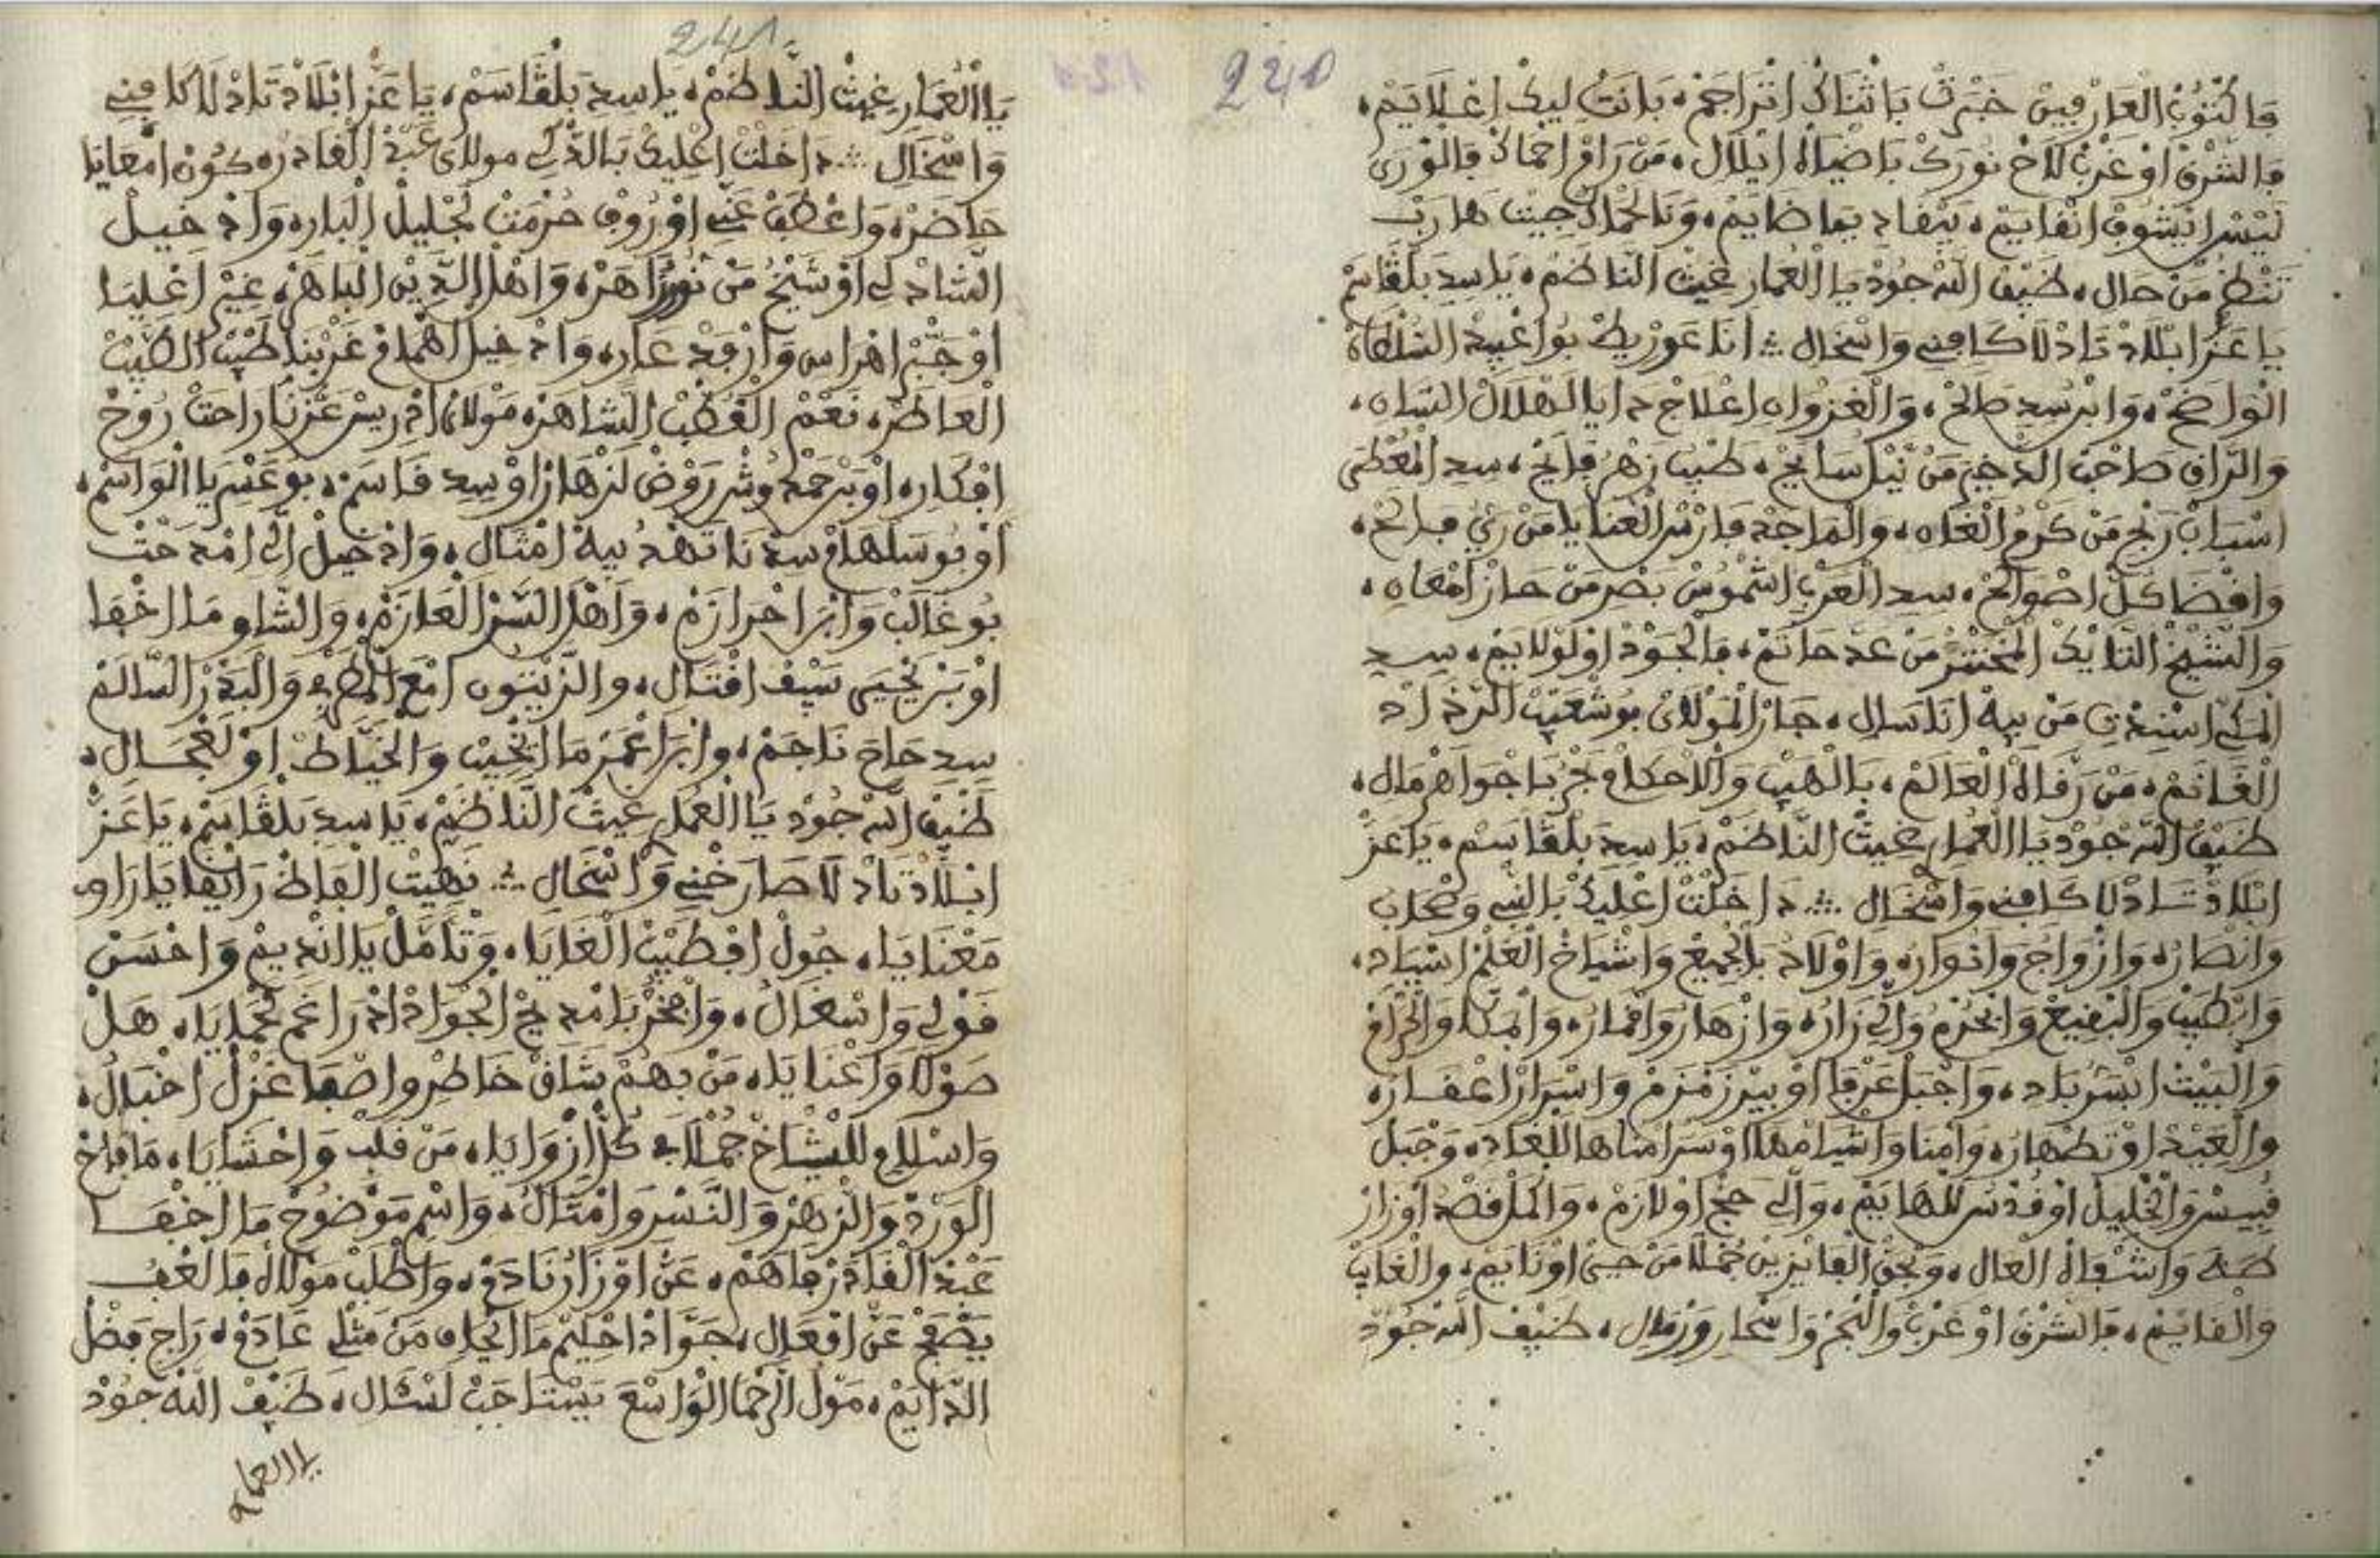 240
فالكتوب العارفين خبرت باثناك اتراجم، بانت ليك اعلايم،
فالشرق او غرب لاح نورك باضياه ايلال، من رام احماك فالورى
ليس ايشوف انقايم، ينفاد يما ضايم، وانا لحماك جيت هارب
تنظر من حال، ضيف الله جود يا العمار غيث الناظم، يا سيد بلقاسم
يا عز ابلاد تادلا كافني واسخال ؞ انا عوريط بوا عبيد السلطان
الواضح، وابن سيد صالح، والغزوان اعلاج دايا الهلال السان،
والزاق صاحب الدخير من نيل سايح، طيب زهر فايح، سيد المعطى
اسباب ربح من كرم الغان، والماجد فارس العنايا من ريّ مبالح،
وافضا كل اصوالح، سيد العرب الشموس بصر من حاز امعان،
والشيخ التايك المختتر من عد حاتم، فالجود او لولايم، سيد
المكي اسيدت من بيه انا سال، جاز المولاي بوشعيب الرداد
الغانم، من رقاه العالم، بالهيب والاحكام جر باجواهر مال،
ضيف الله جود يا العمار غيث الناظم، يا سيد بلقاسم، يا عز
ابلاد تادلا كافني واسخال ؞ داخلت اعليك بالنبي وصحاب
وانصاره وازواج وانواره واولاد بالجميع واشياخ العلم اسياد،
وابطيب والبقيع والحرم والي زاره وازهار واقماره وامكا والحراف
والبيت ابسر باد، واجبل عرفا او بير زمزم واسرار اعفاره
والعبد او تطهاره وامنا واشيا مهلا او سر امناها للغاد، وجبل
قبيس والخليل او قدس للهايم، والي حج او لازم، والملا قصد اوزار
طه واشفاه العال، وبحق الفايزين جملا من حي او نايم، والغايب
والقايم، فالشرق او غرب والنجم واسحار ورمال، ضيف الله جود
241
يا العمار غيث الناظم، يا سيد بلقاسم، يا عز ابلاد تادلا كافني
واسخال ؞ داخلت اعليك بالذكي مولاي عبد القادر، كون امعايا
حاضر، واعطف عني او روف حرمت لجليل البار، واد خيل
الشادلي او شيخ من نور زاهر، واهل الدين الباهر، غير اعليا
او جبر اهراس وارفد عار، واد خيل اهمام غربنا طيب الطيب
العاطر، نعم القطب الشاهر، مولانا ادريس عزنا راحت روح
افكار، او برحمد وشر روض لزهار او سيد قاسم، بو عسريا الواسم،
او بوسلهام سيد نا تهد بيه امتال، واد خيل الي امدحت
بو غالب وابرا حرازم، واهل السر العازم، والشاو ما اخفا
او بن يحيى سيف افتال، والزيتون امع المصري والبدر السالم
سيد حاج ناجم، وابرا عمر ما ايخيب والخياط او لفجال،
ضيف الله جود يا العمار غيث الناظم، يا سيد بلقاسم، يا عز
ابلاد تادلا صارخني واسخال ؞ نهيت الفاظ رايقا يا راو
مغنايا، جول افطيب الغايا، وتامل يا انديم واحسن
قولي واسغال، وافخر بامديح الجواد اد راغم لحمايا، هل
صولا واعنايا، من بهم شاق خاطر واصفا غزل اخبال،
واسلام للشياخ جملا في كل ازوايا، من قلب واحشايا، ما فاح
الورد والزهر والنسر وامتال، واسم موضوح ما اخفا
عبد القادر فاهم، عن اوزار نادم، واطلب مولاه فالعف
يصفح عن افعال، جواد احليم ما ايخاف من مثلي عادم، راج فضل
الدايم، مول الرحما الواسع يستاجب لسال، ضيف الله جود
يا العمار